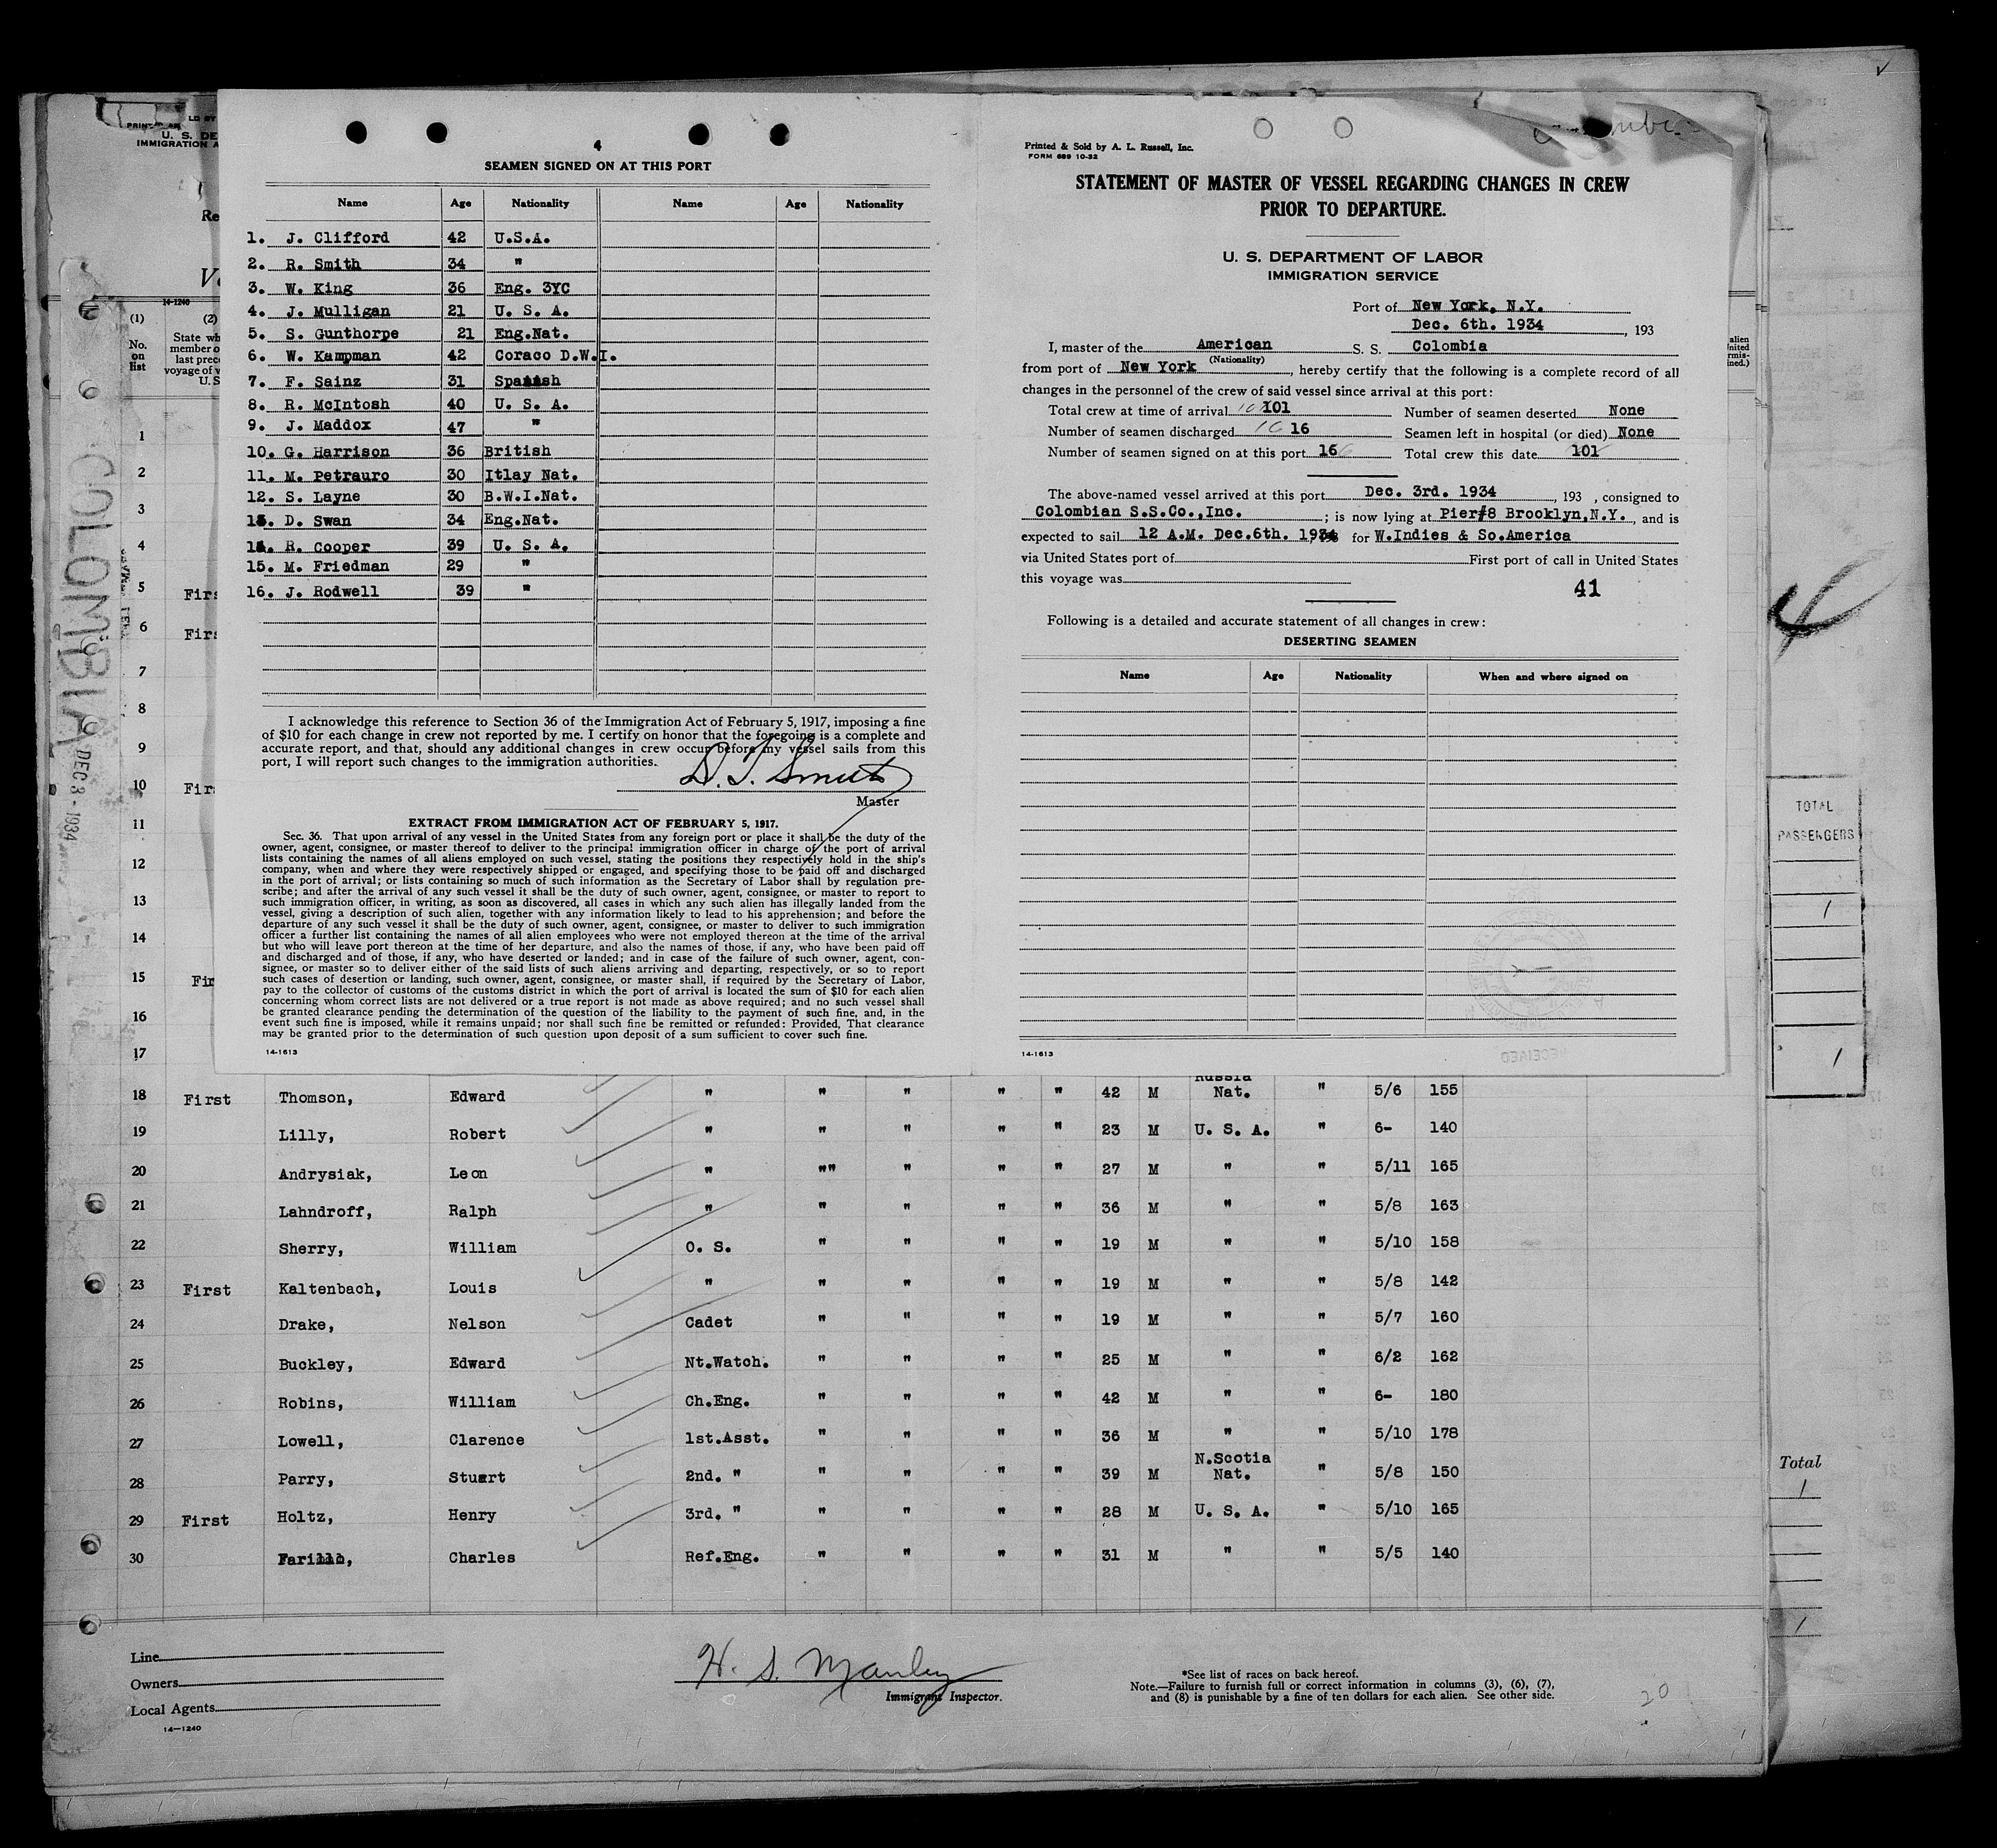 4
SEAMEN SIGNED ON AT THIS PORT
Name Age Nationality Name Age Nationality
1. J. Clifford 42 U.S.A.
2. R. Smith 34 "
3. W. King 36 Eng. 3YC
4. J. Mulligan 21 U. S. A.
5. S. Gunthorpe 21 Eng.Nat.
6. W. Kampman 42 Coraco D.W.I.
7. F. Sainz 31 Spanish
8. R. McIntosh 40 U. S. A.
9. J. Maddox 47 "
10. G. Harrison 36 British
11. M. Petrauro 30 Itlay Nat.
12. S. Layne 30 B.W.I.Nat.
13. D. Swan 34 Eng.Nat.
14. R. Cooper 39 U. S. A.
15. M. Friedman 29 "
16. J. Rodwell 39 "
I acknowledge this reference to Section 36 of the Immigration Act of February 5, 1917, imposing a fine
of $10 for each change in crew not reported by me. I certify on honor that the foregoing is a complete and
accurate report, and that, should any additional changes in crew occur before my vessel sails from this
port, I will report such changes to the immigration authorities.
Master
EXTRACT FROM IMMIGRATION ACT OF FEBRUARY 5, 1917.
Sec. 36. That upon arrival of any vessel in the United States from any foreign port or place it shall be the duty of the
owner, agent, consignee, or master thereof to deliver to the principal immigration officer in charge of the port of arrival
lists containing the names of all aliens employed on such vessel, stating the positions they respectively hold in the ship's
company, when and where they were respectively shipped or engaged, and specifying those to be paid off and discharged
in the port of arrival; or lists containing so much of such information as the Secretary of Labor shall by regulation pre-
scribe; and after the arrival of any such vessel it shall be the duty of such owner, agent, consignee, or master to report to
such immigration officer, in writing, as soon as discovered, all cases in which any such alien has illegally landed from the
vessel, giving a description of such alien, together with any information likely to lead to his apprehension; and before the
departure of any such vessel it shall be the duty of such owner, agent, consignee, or master to deliver to such immigration
officer a further list containing the names of all alien employees who were not employed thereon at the time of the arrival
but who will leave port thereon at the time of her departure, and also the names of those, if any, who have been paid off
and discharged and of those, if any, who have deserted or landed; and in case of the failure of such owner, agent, con-
signee, or master so to deliver either of the said lists of such aliens arriving and departing, respectively, or so to report
such cases of desertion or landing, such owner, agent, consignee, or master shall, if required by the Secretary of Labor,
pay to the collector of customs of the customs district in which the port of arrival is located the sum of $10 for each alien
concerning whom correct lists are not delivered or a true report is not made as above required; and no such vessel shall
be granted clearance pending the determination of the question of the liability to the payment of such fine, and, in the
event such fine is imposed, while it remains unpaid; nor shall such fine be remitted or refunded: Provided, That clearance
may be granted prior to the determination of such question upon deposit of a sum sufficient to cover such fine.
14-1613
Printed & Sold by A. L. Russell, Inc.
FORM 689 10-32
STATEMENT OF MASTER OF VESSEL REGARDING CHANGES IN CREW
PRIOR TO DEPARTURE.
U. S. DEPARTMENT OF LABOR
IMMIGRATION SERVICE
Port of New York, N.Y.
Dec. 6th. 1934, 193
I, master of the American S. S. Colombia
(Nationality)
from port of New York, hereby certify that the following is a complete record of all
changes in the personnel of the crew of said vessel since arrival at this port:
Total crew at time of arrival 101 Number of seamen deserted None
Number of seamen discharged 16 Seamen left in hospital (or died) None
Number of seamen signed on at this port 16 Total crew this date 101
The above-named vessel arrived at this port Dec. 3rd. 1934, 193 , consigned to
Colombian S.S.Co.,Inc. ; is now lying at Pier#8 Brooklyn,N.Y., and is
expected to sail 12 A.M. Dec.6th. 1934 for W.Indies & So.America
via United States port of First port of call in United States
this voyage was
41
Following is a detailed and accurate statement of all changes in crew:
DESERTING SEAMEN
Name Age Nationality When and where signed on
14-1613
COLOMBIA
DEC 3 - 1934
U. S. DE
IMMIGRATION A
Re
14-1240
(1) (2)
No. on list
State wh
member o
last prec
voyage of v
U. S
1
2
3
4
5 Firs
6 Firs
7
8
9
10 Fir
11
12
13
14
15 Fir
16
17
Russia
18 First Thomson, Edward " " " " " 42 M Nat. " 5/6 155
19 Lilly, Robert " " " " " 23 M U. S. A. " 6- 140
20 Andrysiak, Leon " "" " " " 27 M " " 5/11 165
21 Lahndroff, Ralph " " " " " 36 M " " 5/8 163
22 Sherry, William O. S. " " " " 19 M " " 5/10 158
23 First Kaltenbach, Louis " " " " " 19 M " " 5/8 142
24 Drake, Nelson Cadet " " " " 19 M " " 5/7 160
25 Buckley, Edward Nt.Watch. " " " " 25 M " " 6/2 162
26 Robins, William Ch.Eng. " " " " 42 M " " 6- 180
27 Lowell, Clarence 1st.Asst. " " " " 36 M " " 5/10 178
N.Scotia
28 Parry, Stuart 2nd. " " " " " 39 M Nat. " 5/8 150
29 First Holtz, Henry 3rd. " " " " " 28 M U. S. A. " 5/10 165
30 Charles Ref.Eng. " " " " 31 M " " 5/5 140
Line
Owners
Local Agents
14-1240
H. S. Manley
Immigrant Inspector.
*See list of races on back hereof.
Note.—Failure to furnish full or correct information in columns (3), (6), (7),
and (8) is punishable by a fine of ten dollars for each alien. See other side.
20
TOTAL
PASSENGERS
1
1
Total
1
1